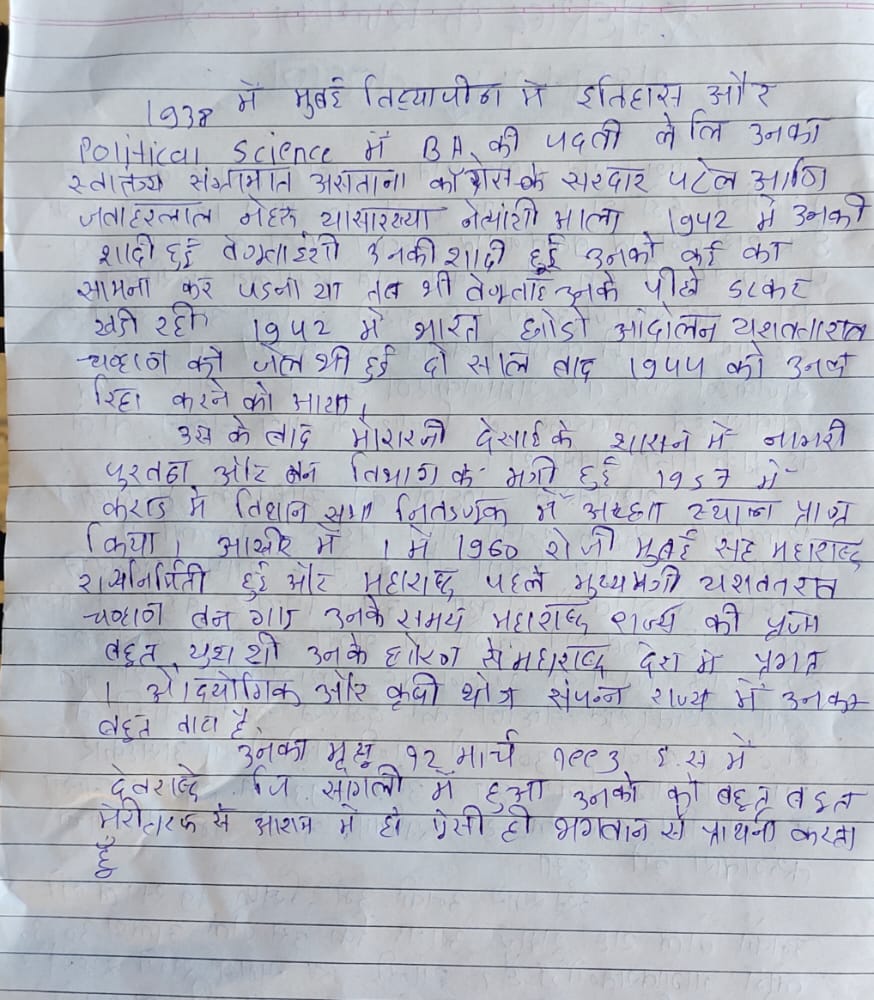 1938 में मुंबई विद्यापीठ में इतिहास और
Political Science में BA की पदवी ले लि उनका
स्वातंत्र्य संग्रामात असताना काँग्रेस के सरदार पटेल आणि
जवाहरलाल नेहरू यासारख्या नेत्यांशी आला 1942 में उनकी
शादी हुई वेणुताईशी उनकी शादी हुई उनको कई का
सामना कर पडना था तब भी वेणुताई उनके पीछे डटकर
खडी रही 1942 में भारत छोडो आंदोलन यशवंतराव
चव्हाण को जेल भी हुई दो साल बाद 1944 को उनको
रिहा करने को आया।
उस के बाद मोरारजी देसाई के शासन में नागरी
पुरवठा और वन विभाग के मंत्री हुई 1957 में
कराड में विधान सभा निवडणूक में अच्छा स्थान प्राप्त
किया। आखीर में 1 में 1960 रोजी मुंबई सह महाराष्ट्र
राज्यनिर्मिती हुई और महाराष्ट्र पहले मुख्यमंत्री यशवंतराव
चव्हाण बन गए उनके समय महाराष्ट्र राज्य की प्रजा
बहुत खुश थी उनके धोरण से महाराष्ट्र देश में प्रगत
। औदयोगिक और कृषी क्षेत्र संपन्न राज्य में उनका
बहुत वाटा है
उनका मृत्यु १२ मार्च १९९३ इ.स में
देवराष्ट्रे जि सांगली में हुआ उनको को बहुत बहुत
मेरी तरफ से आराम में हो ऐसी ही भगवान से प्रार्थना करता
हूँ